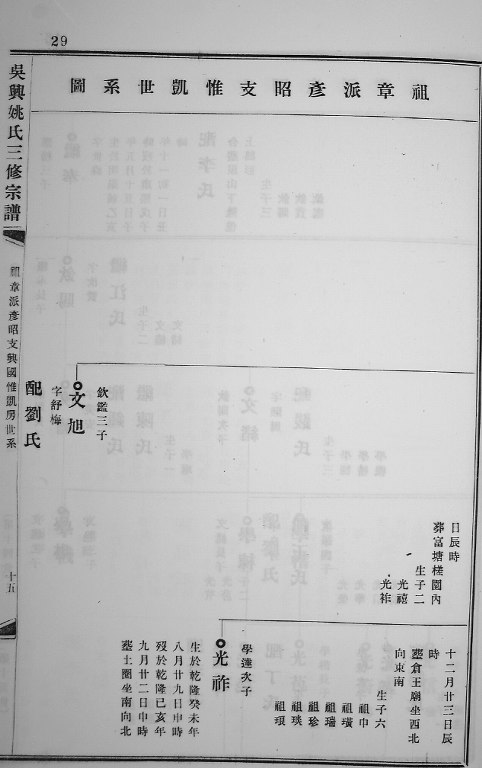 29
祖章派彥昭支惟凱世系圖
日辰時
葬富塘槎園內
生子二
光禧
光祚
十二月廿三日辰
時
塟倉王廟坐西北
向東南
生子六
祖申
祖璜
祖瑞
祖珍
祖瑛
學達次子
光祚
生於乾隆癸未年
八月廿九日申時
歿於乾隆已亥年
九月廿二日申時
塟土圈坐南向北
欽鑑三子
文旭
字舒梅
配劉氏
吳興姚氏三修宗譜
祖章派彥昭支興國惟凱房世系
十五